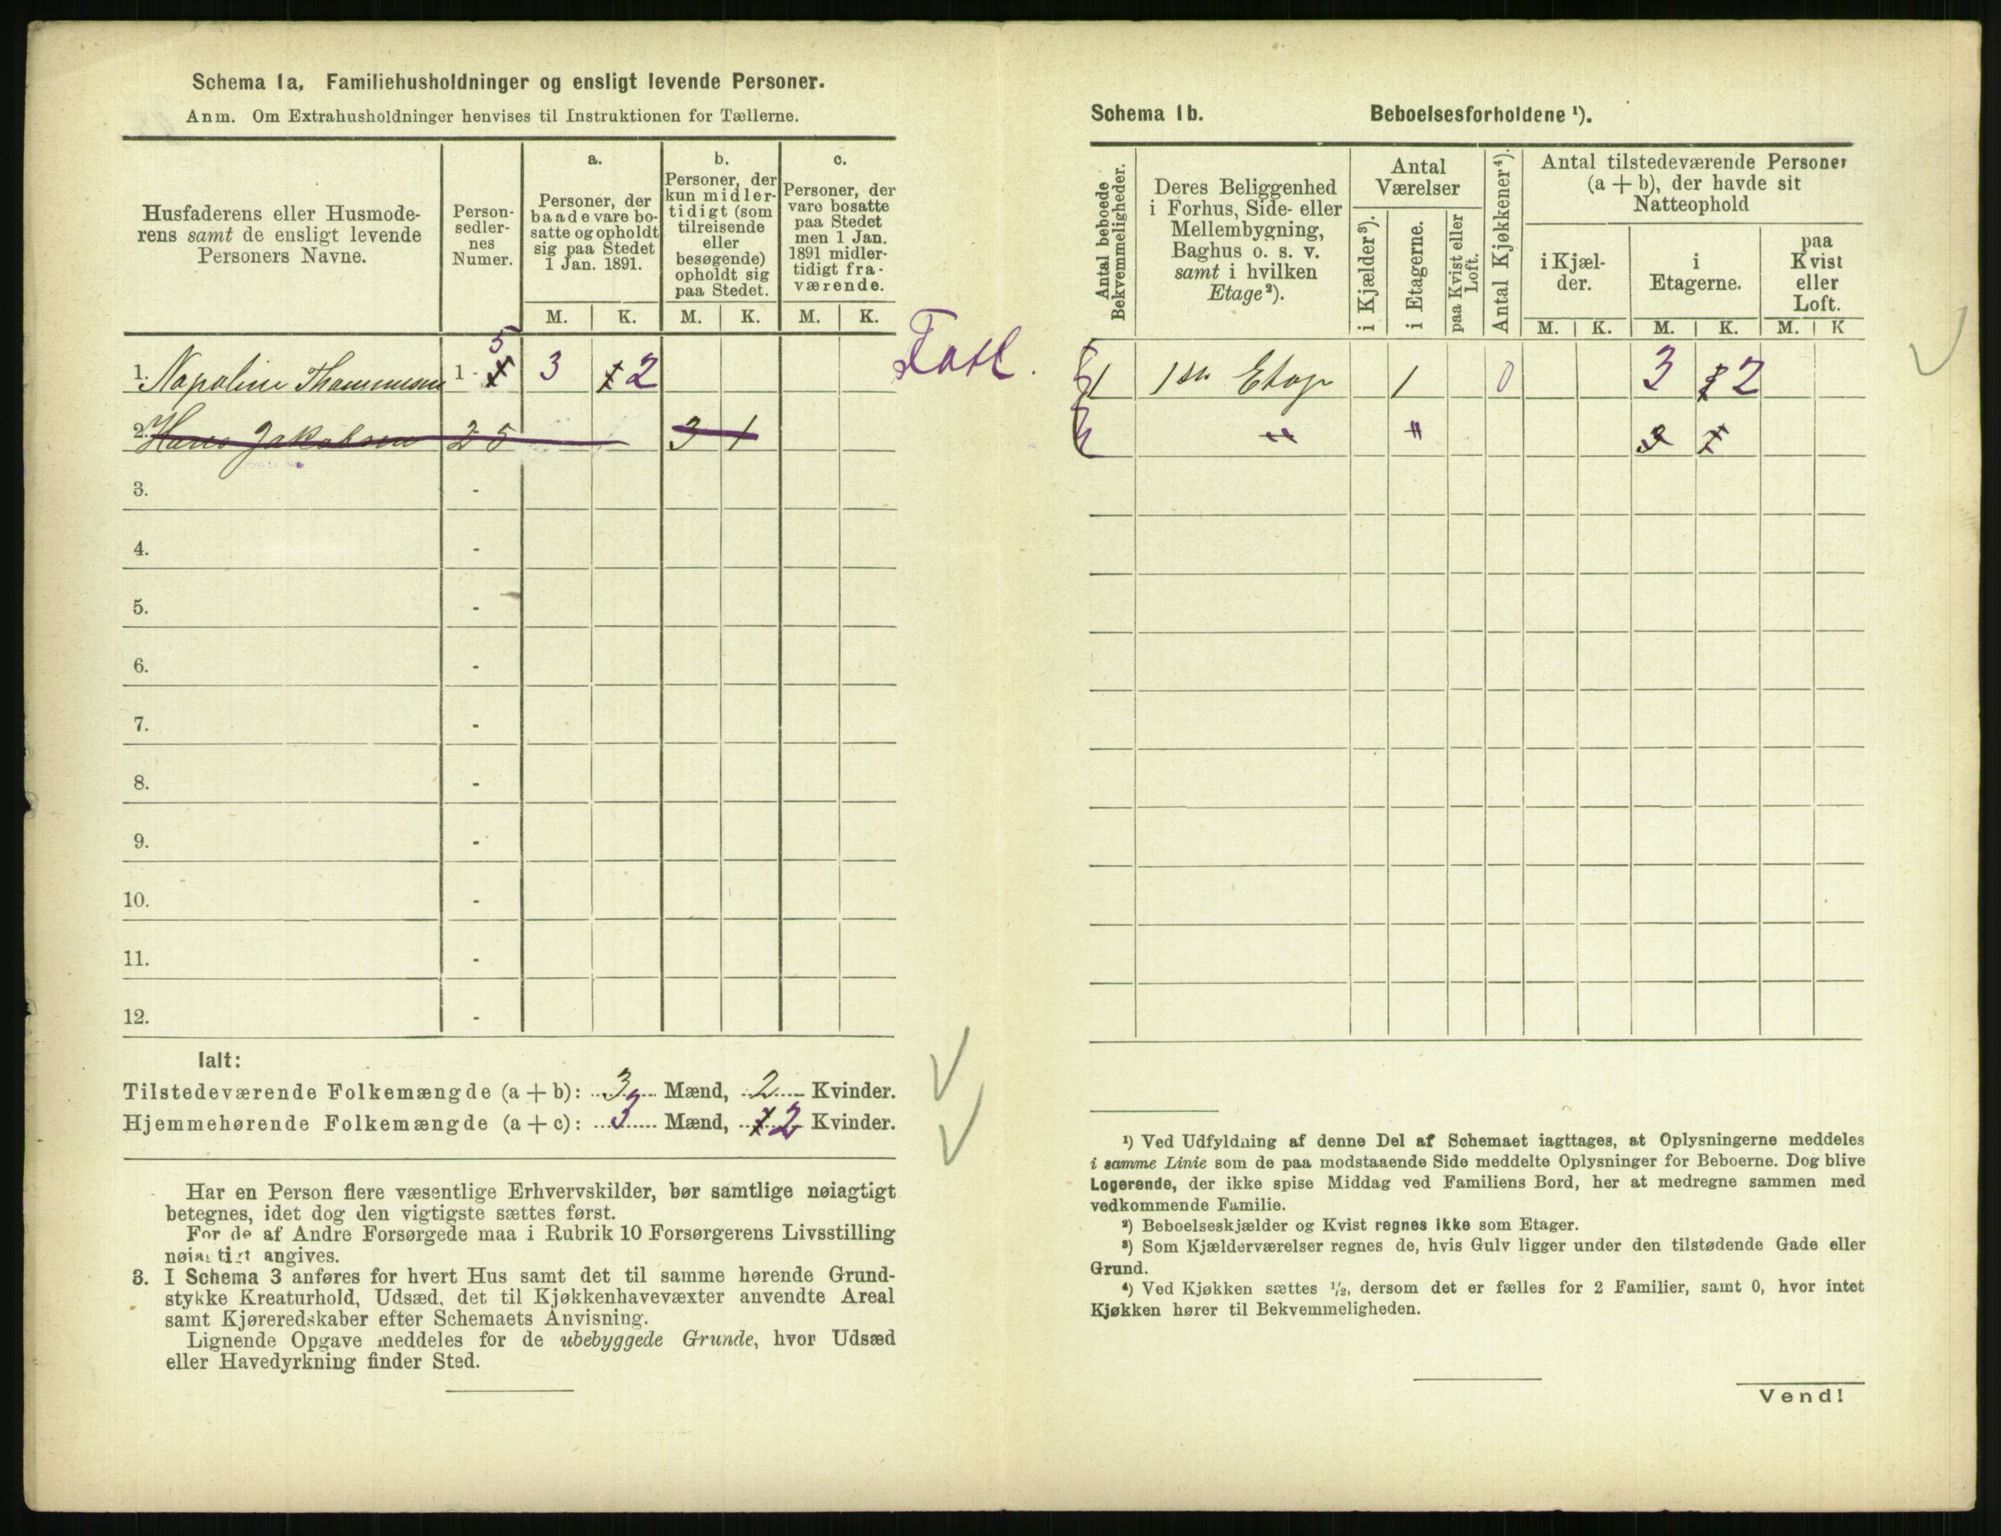 Schema 1a. Familiehusholdninger og ensligt levende Personer.
Anm. Om Extrahusholdninger henvises til Instruktionen for Tællerne.
Husfaderens eller Husmode-
rens samt de ensligt levende
Personers Navne.
Person-
sedler-
nes
Numer.
a.
Personer, der
baade vare bo-
satte og opholdt
sig paa Stedet
1 Jan. 1891.
b.
Personer, der
kun midler-
tidigt (som
tilreisende
eller
besøgende)
opholdt sig
paa Stedet.
c.
Personer, der
vare bosatte
paa Stedet
men 1 Jan.
1891 midler-
tidigt fra-
værende.
M. K. M. K. M. K.
1. Napoline Thommesen 1 - 5 3 2
2. Hans Jakobsen 2 5 3 1
3. -
4. -
5. -
6. -
7. -
8. -
9. -
10. -
11. -
12. -
Ialt:
Tilstedeværende Folkemængde (a + b): 3 Mænd, 2 Kvinder.
Hjemmehørende Folkemængde (a + c): 3 Mænd, 2 Kvinder.
Har en Person flere væsentlige Erhvervskilder, bør samtlige nøiagtigt
betegnes, idet dog den vigtigste sættes først.
For de af Andre Forsørgede maa i Rubrik 10 Forsørgerens Livsstilling
nøiagtigt angives.
3. I Schema 3 anføres for hvert Hus samt det til samme hørende Grund-
stykke Kreaturhold, Udsæd, det til Kjøkkenhavevæxter anvendte Areal
samt Kjøreredskaber efter Schemaets Anvisning.
Lignende Opgave meddeles for de ubebyggede Grunde, hvor Udsæd
eller Havedyrkning finder Sted.
Schema 1b. Beboelsesforholdene ¹).
Antal beboede
Bekvemmeligheder.
Deres Beliggenhed
i Forhus, Side- eller
Mellembygning,
Baghus o. s. v.
samt i hvilken
Etage²).
Antal
Værelser
i Kjælder³).
i Etagerne.
paa Kvist eller
Loft.
Antal Kjøkkener⁴).
Antal tilstedeværende Personer
(a + b), der havde sit
Natteophold
i Kjæl-
der.
i
Etagerne.
paa
Kvist
eller
Loft.
M. K. M. K. M. K
1 1ste Etage 1 0 3 2
" "
¹) Ved Udfyldning af denne Del af Schemaet iagttages, at Oplysningerne meddeles
i samme Linie som de paa modstaaende Side meddelte Oplysninger for Beboerne. Dog blive
Logerende, der ikke spise Middag ved Familiens Bord, her at medregne sammen med
vedkommende Familie.
²) Beboelseskjælder og Kvist regnes ikke som Etager.
³) Som Kjælderværelser regnes de, hvis Gulv ligger under den tilstødende Gade eller
Grund.
⁴) Ved Kjøkken sættes ¹/₂, dersom det er fælles for 2 Familier, samt 0, hvor intet
Kjøkken hører til Bekvemmeligheden.
Vend!